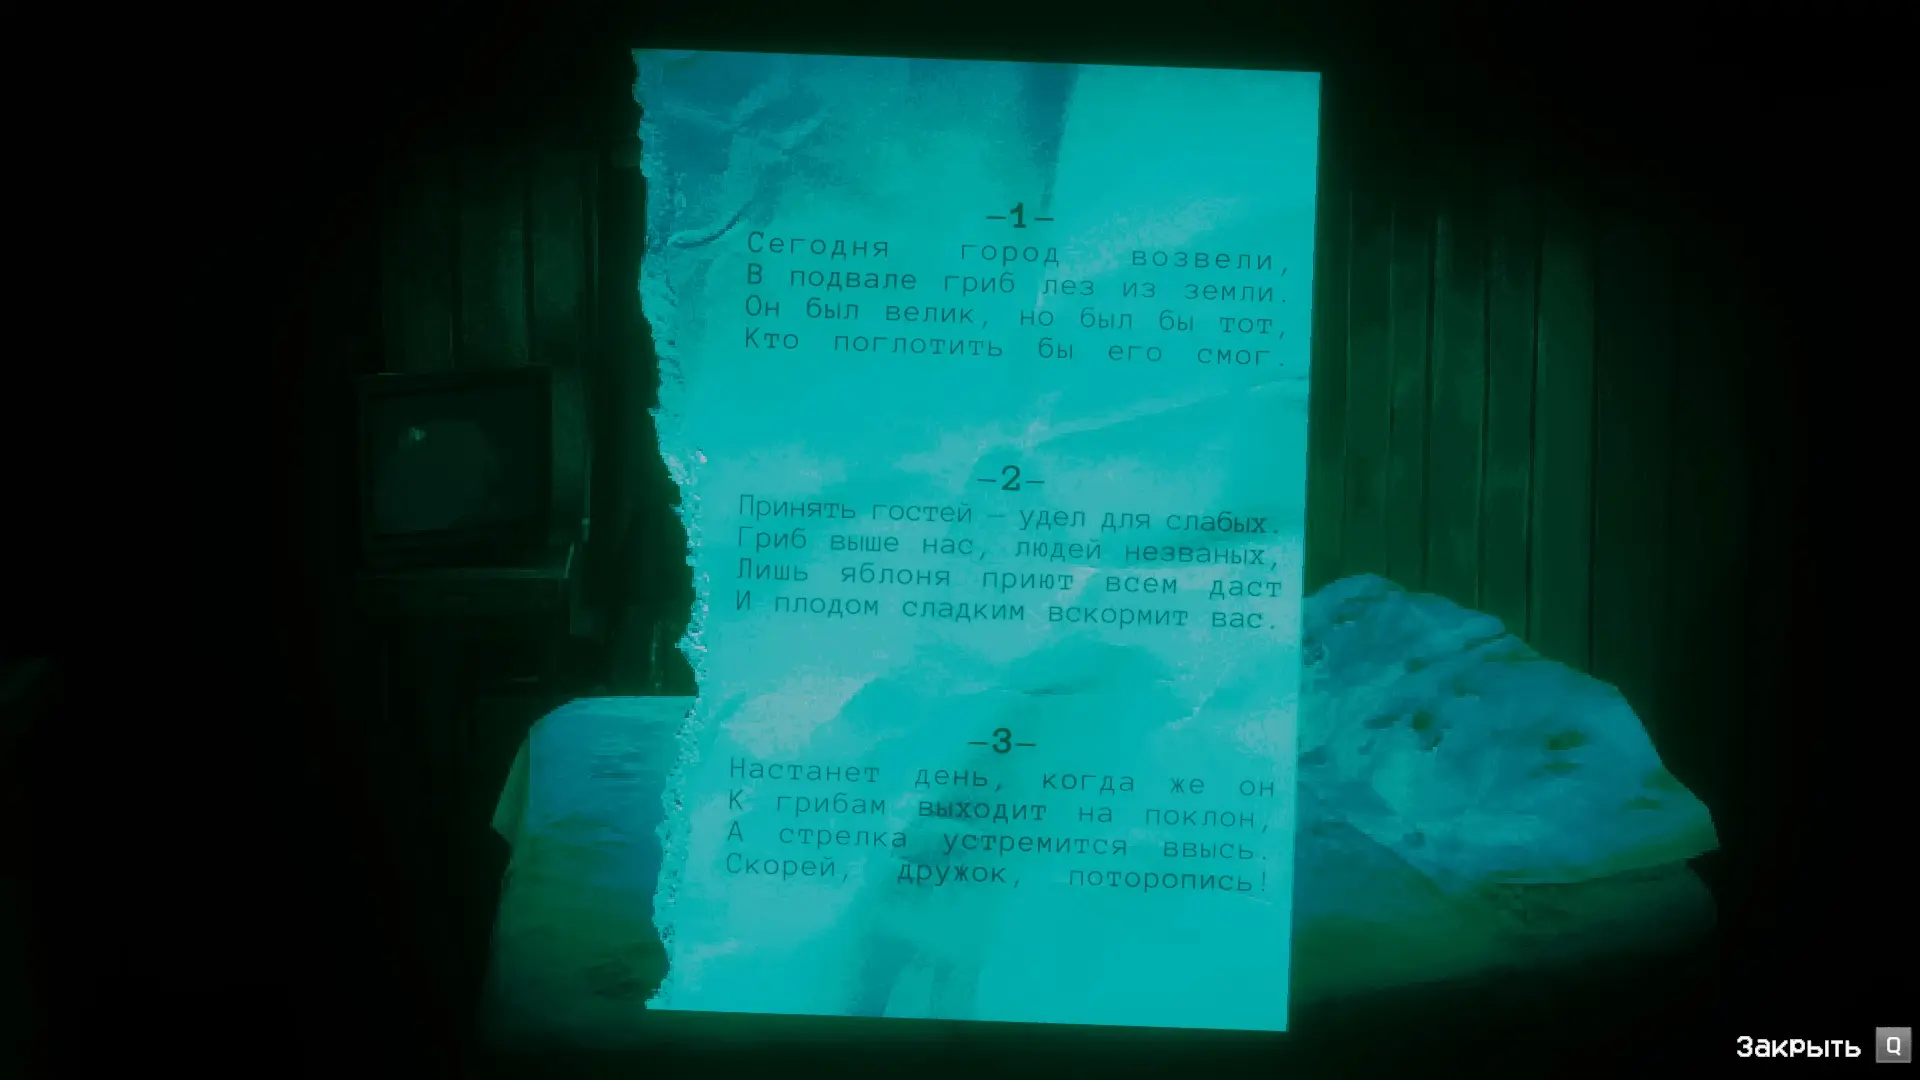 –1–
Сегодня город возвели,
В подвале гриб лез из земли.
Он был велик, но был бы тот,
Кто поглотить бы его смог.
–2–
Принять гостей – удел для слабых.
Гриб выше нас, людей незваных,
Лишь яблоня приют всем даст
И плодом сладким вскормит вас.
–3–
Настанет день, когда же он
К грибам выходит на поклон,
А стрелка устремится ввысь.
Скорей, дружок, поторопись!
Закрыть Q